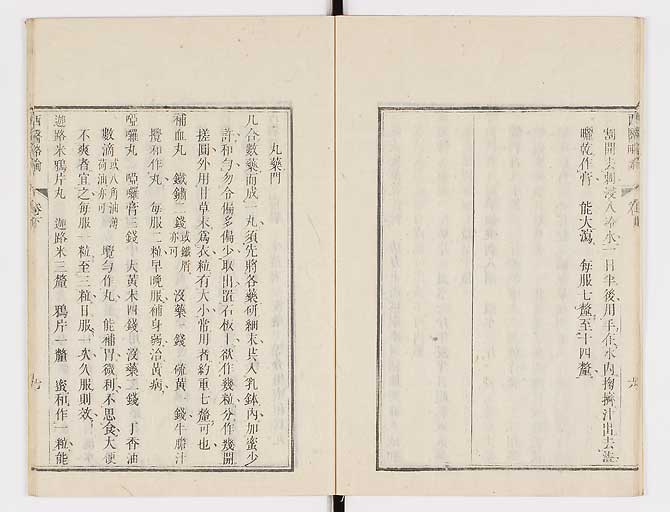 割開去刺浸八冷水一日半後用手在水內掏擠汁出去渣
曬乾作膏　能大瀉　每服七釐至十四釐
丸藥門
凡合數藥而成一丸須先將各藥研細末共入乳鉢內加蜜少
許和勻勿令偏多偏少取出置石板上欲作幾粒分作幾開
搓圓外用甘草末為衣粒有大小常用者約重七釐可也
補血丸　鐵鏽二錢或鐵屑亦可　沒藥一錢　磺黃一錢牛膽汁
攪和作丸　每服二粒早晚服補身弱治黃病
啞囉丸　啞囉膏三錢　大黃末四錢　沒藥二錢　丁香油
數滴或八角油薄荷油亦可　攪勻作丸　能補胃微利不思食大便
不爽者宜之每服一粒至三粒日服一次久服則效
迦路米鴉片丸　迦路米三釐　鴉片一釐　蜜和作一粒能
西醫略論　卷下　七